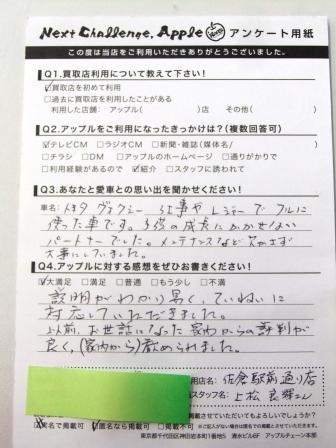 Next Challenge, Apple アンケート用紙
この度は当店をご利用いただきありがとうございました。
Q1.買取店利用について教えて下さい!
☑買取店を初めて利用
□過去に買取店を利用したことがある
利用した店舗: アップル( )店 その他( )
Q2.アップルをご利用になったきっかけは?(複数回答可)
☑テレビCM □ラジオCM □新聞・雑誌(媒体名/ )
□チラシ □DM □アップルのホームページ □通りがかりで
□利用経験があるので ☑紹介 □スタッフに誘われて
Q3.あなたと愛車との思い出を聞かせください!
車名: トヨタ ヴォクシー 仕事や レジャーで フルに
使った車です。子供の成長にかかせない
パートナーでした。メンテナンスなど欠かさず
大事にしていました。
Q4.アップルに対する感想をぜひお書きください!
☑大満足 □満足 □普通 □もう少し □不満
説明がわかり易く、ていねいに
対応していただきました。
以前、お世話になった家内からの評判が
良く、(家内から)勧められました。
用店名: 佐倉駅前通り店
スタッフ名: 上松 良輝さん
掲載させていただいてもよろしいでしょうか?
実名で掲載可 ☑匿名なら掲載可 □掲載不可
東京都千代田区神田岩本町1番地5 清水ビル6F アップルチェーン本部